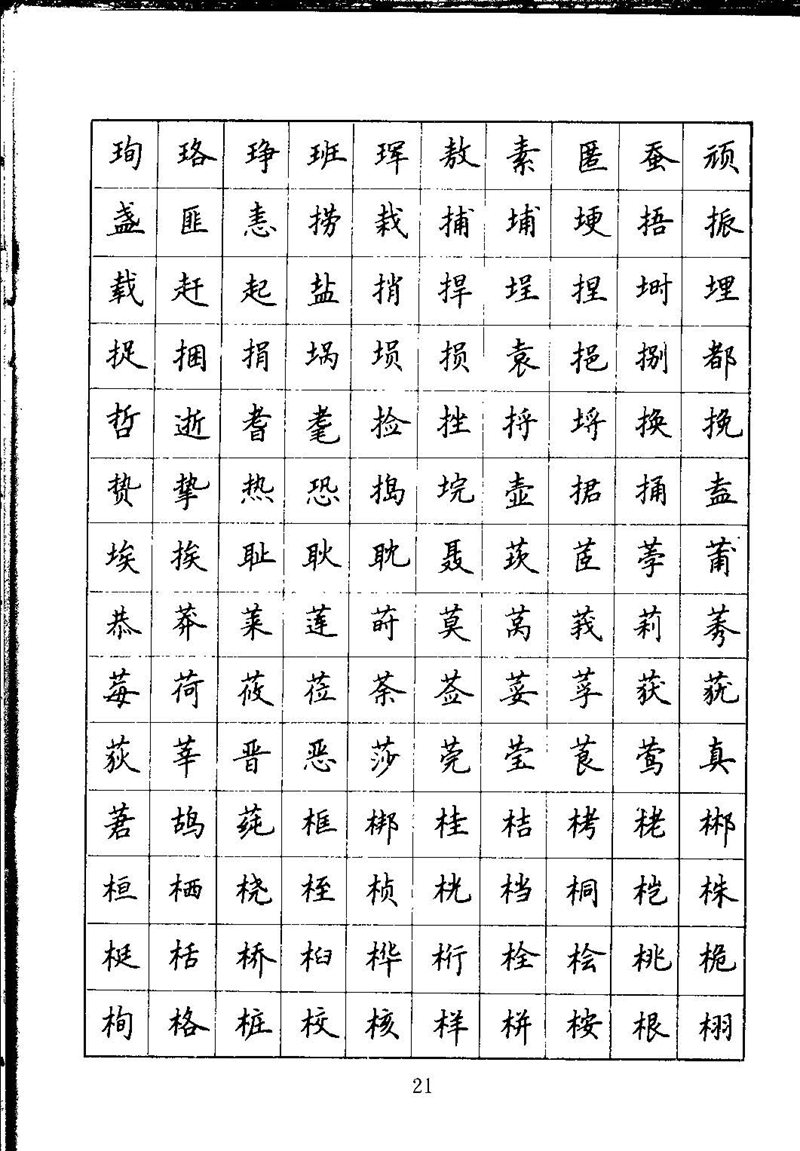 珣 珞 琤 班 珲 敖 素 匿 蚕 顽
盏 匪 恚 捞 栽 捕 埔 埂 捂 振
载 赶 起 盐 捎 捍 埕 捏 埘 埋
捉 捆 捐 埚 埙 损 袁 挹 捌 都
哲 逝 耆 耄 捡 挫 捋 埒 换 挽
贽 挚 热 恐 捣 垸 壶 捃 捅 盍
埃 挨 耻 耿 耽 聂 莰 茝 荸 莆
恭 莽 莱 莲 莳 莫 莴 莪 莉 莠
莓 荷 莜 莅 荼 莶 荽 莩 获 莸
荻 莘 晋 恶 莎 莞 莹 莨 莺 真
莙 鸪 莼 框 梆 桂 桔 栲 栳 郴
桓 栖 桡 桎 桢 桄 档 桐 桤 株
梃 栝 桥 桕 桦 桁 栓 桧 桃 桅
栒 格 桩 校 核 样 栟 桉 根 栩
21